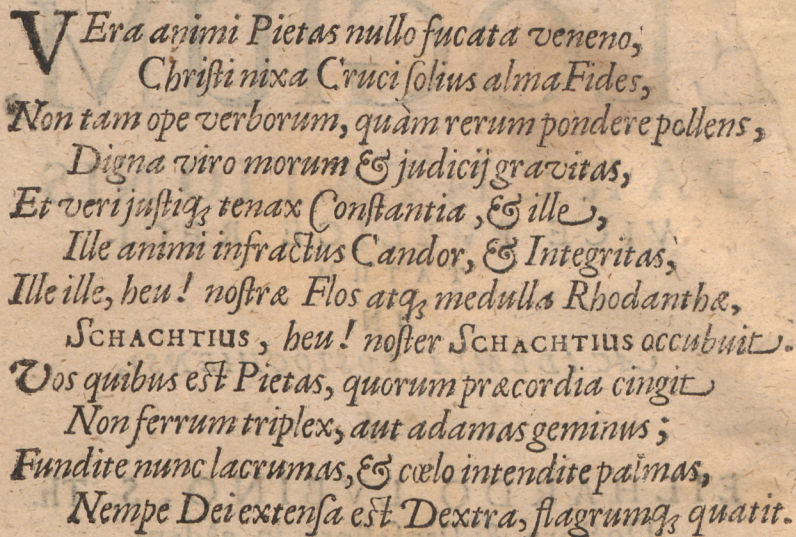 VEra animi Pietas nullo fucata veneno,
Christi nixa Cruci solius alma Fides,
Non tam ope verborum, quàm rerum pondere pollens,
Digna viro morum & judicij gravitas,
Et veri justiq; tenax Constantia, & ille,
Ille animi infractus Candor, & Integritas,
Ille ille, heu! nostræ Flos atq; medulla Rhodanthæ,
SCHACHTIUS, heu! noster SCHACHTIUS occubuit.
Vos quibus est Pietas, quorum præcordia cingit
Non ferrum triplex, aut adamas geminus;
Fundite nunc lacrumas, & cœlo intendite palmas,
Nempe Dei extensa est Dextra, flagrumq; quatit.